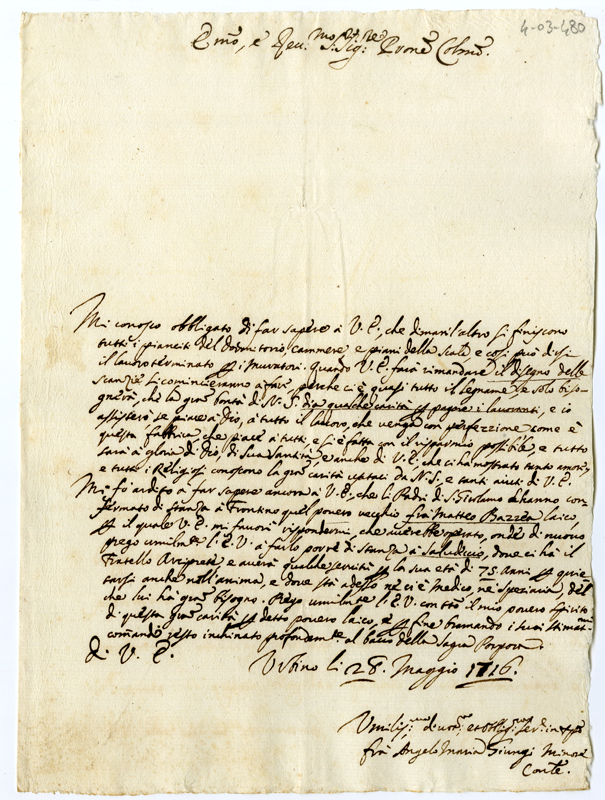 4-03-480
Emo, e Reu.mo S: Sig: Prone Colmo.
Mi conosco obbligato di far sapere à V. E. che doman l'altro si finiscono
tutti i pianciti del dormitorio, cammere e piani della Scala e così può dirsi
il lavoro terminato Muratori. Quando V. E. farà rimandare il disegno delle
Scanzie si cominciaranno à fare, perche ci è quasi tutto il legname, e solo biso-
gnerà, che la gran bontà di N. S. dia qualche carità pagare i lavoranti, e io
assisterò, se piace à Dio, à tutto il lavoro, che venga con perfezzione come è
questa fabbrica che piace à tutti, e si è fatta con il risparmio possibile, e tutto
sarà à gloria di Dio, di Sua Santità, e anche di V. E. che ci hà mostrato tanto amore,
e tutti i Religiosi conoscono la gran carità usataci da N. S. e tanti aiuti di V. E.
Mi fò ardito à far sapere ancora à V. E. che li Padri di S. Girolamo hanno con-
fermato di stanza à Frontino quel povero vecchio frà Matteo Bazzea laico,
il quale V. E. mi favorì rispondermi, che averebbe operato, onde di nuovo
prego umilmte l'E. V. à farlo porre di stanza à Saludecio, dove ci hà il
Fratello Arciprete e averà qualche carità la sua età di 75 Anni quie-
tarsi anche nell'anima, e dove stà adesso ne ci è Medico, ne Speziaria, del
che lui hà gran bisogno. Prego umilmte l'E. V. con tto il mio povero spirito
di questa gran carità detto povero laico, e fine bramando i suoi stimatmi
comandi resto inchinato profondamte al bacio della Sagra Porpora.
D. V. E.
Urbino li 28. Maggio 1716.
Umiliss:mo diuo: et obblig:mo ser:
frà Angelo Maria Giungi Minore
Conte.